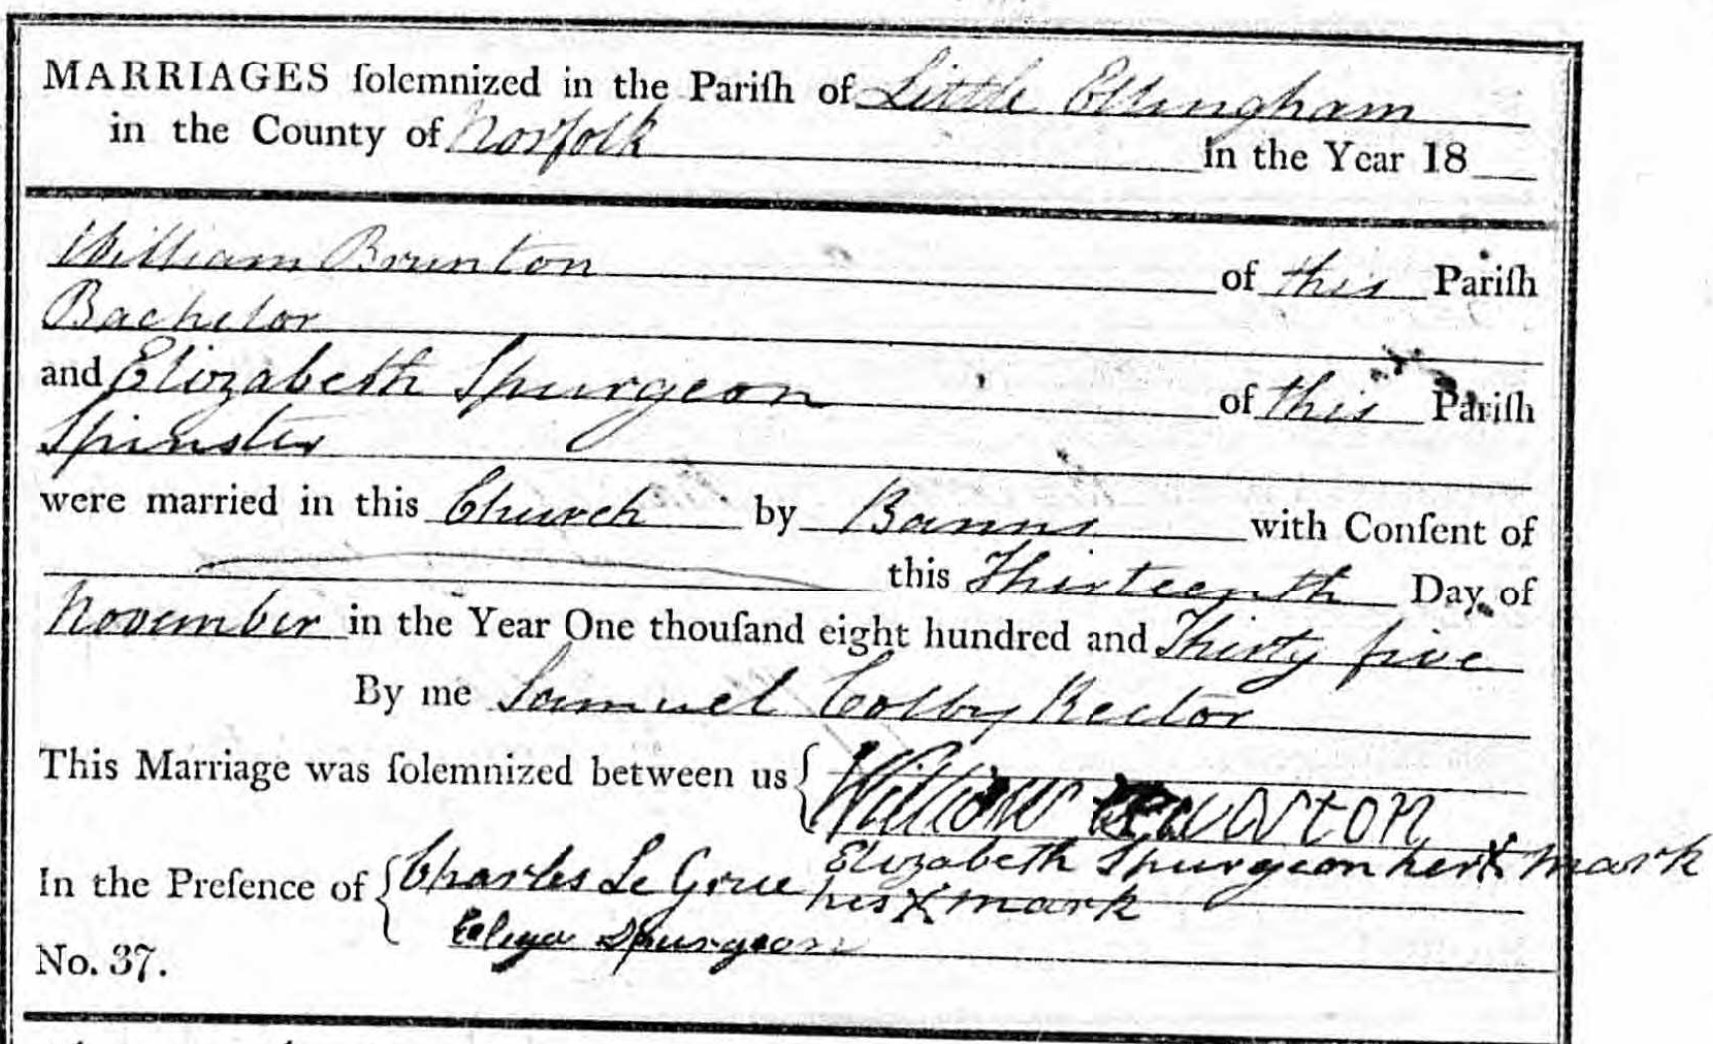 MARRIAGES ſolemnized in the Pariſh of Little Ellingham
in the County of Norfolk in the Year 18
William Brunton of this Pariſh
Bachelor
and Elizabeth Spurgeon of this Pariſh
Spinster
were married in this Church by Banns with Conſent of
this Thirteenth Day of
November in the Year One thouſand eight hundred and Thirty five
By me Samuel Colby Rector
This Marriage was ſolemnized between us { William
Elizabeth Spurgeon her X mark
In the Preſence of { Charles Le Grice his X mark
Spurgeon
No. 37.